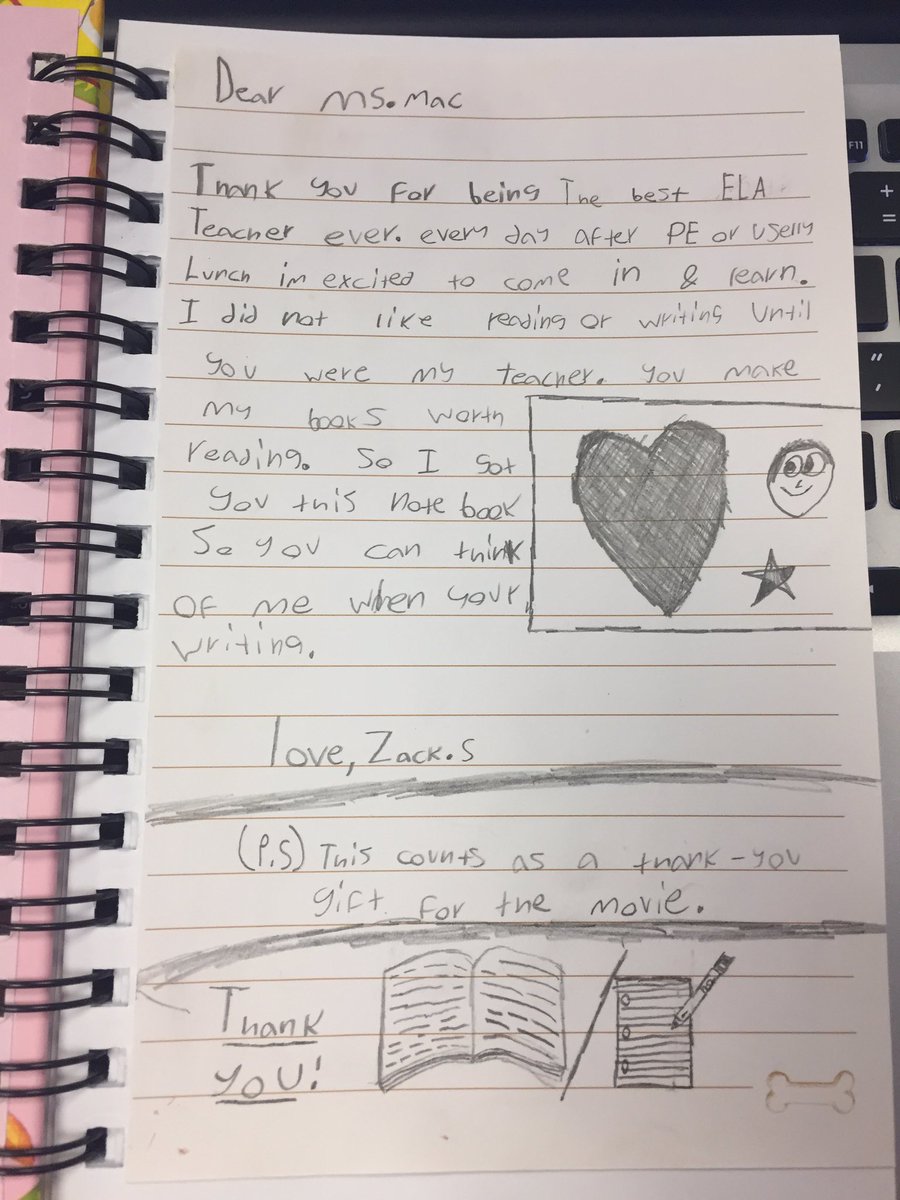 Dear Ms. Mac
Thank you for being The best ELA
Teacher ever. every day after PE or Uselly
Lunch im excited to come in & learn.
I did not like reading or writing Until
you were my teacher. you make
my books worth
reading. So I got
you this note book
So you can think
OF me when your
writing.
love, Zack.S
(P.S) This counts as a thank-you
gift for the movie.
Thank
you!
F11
+
=
"
,